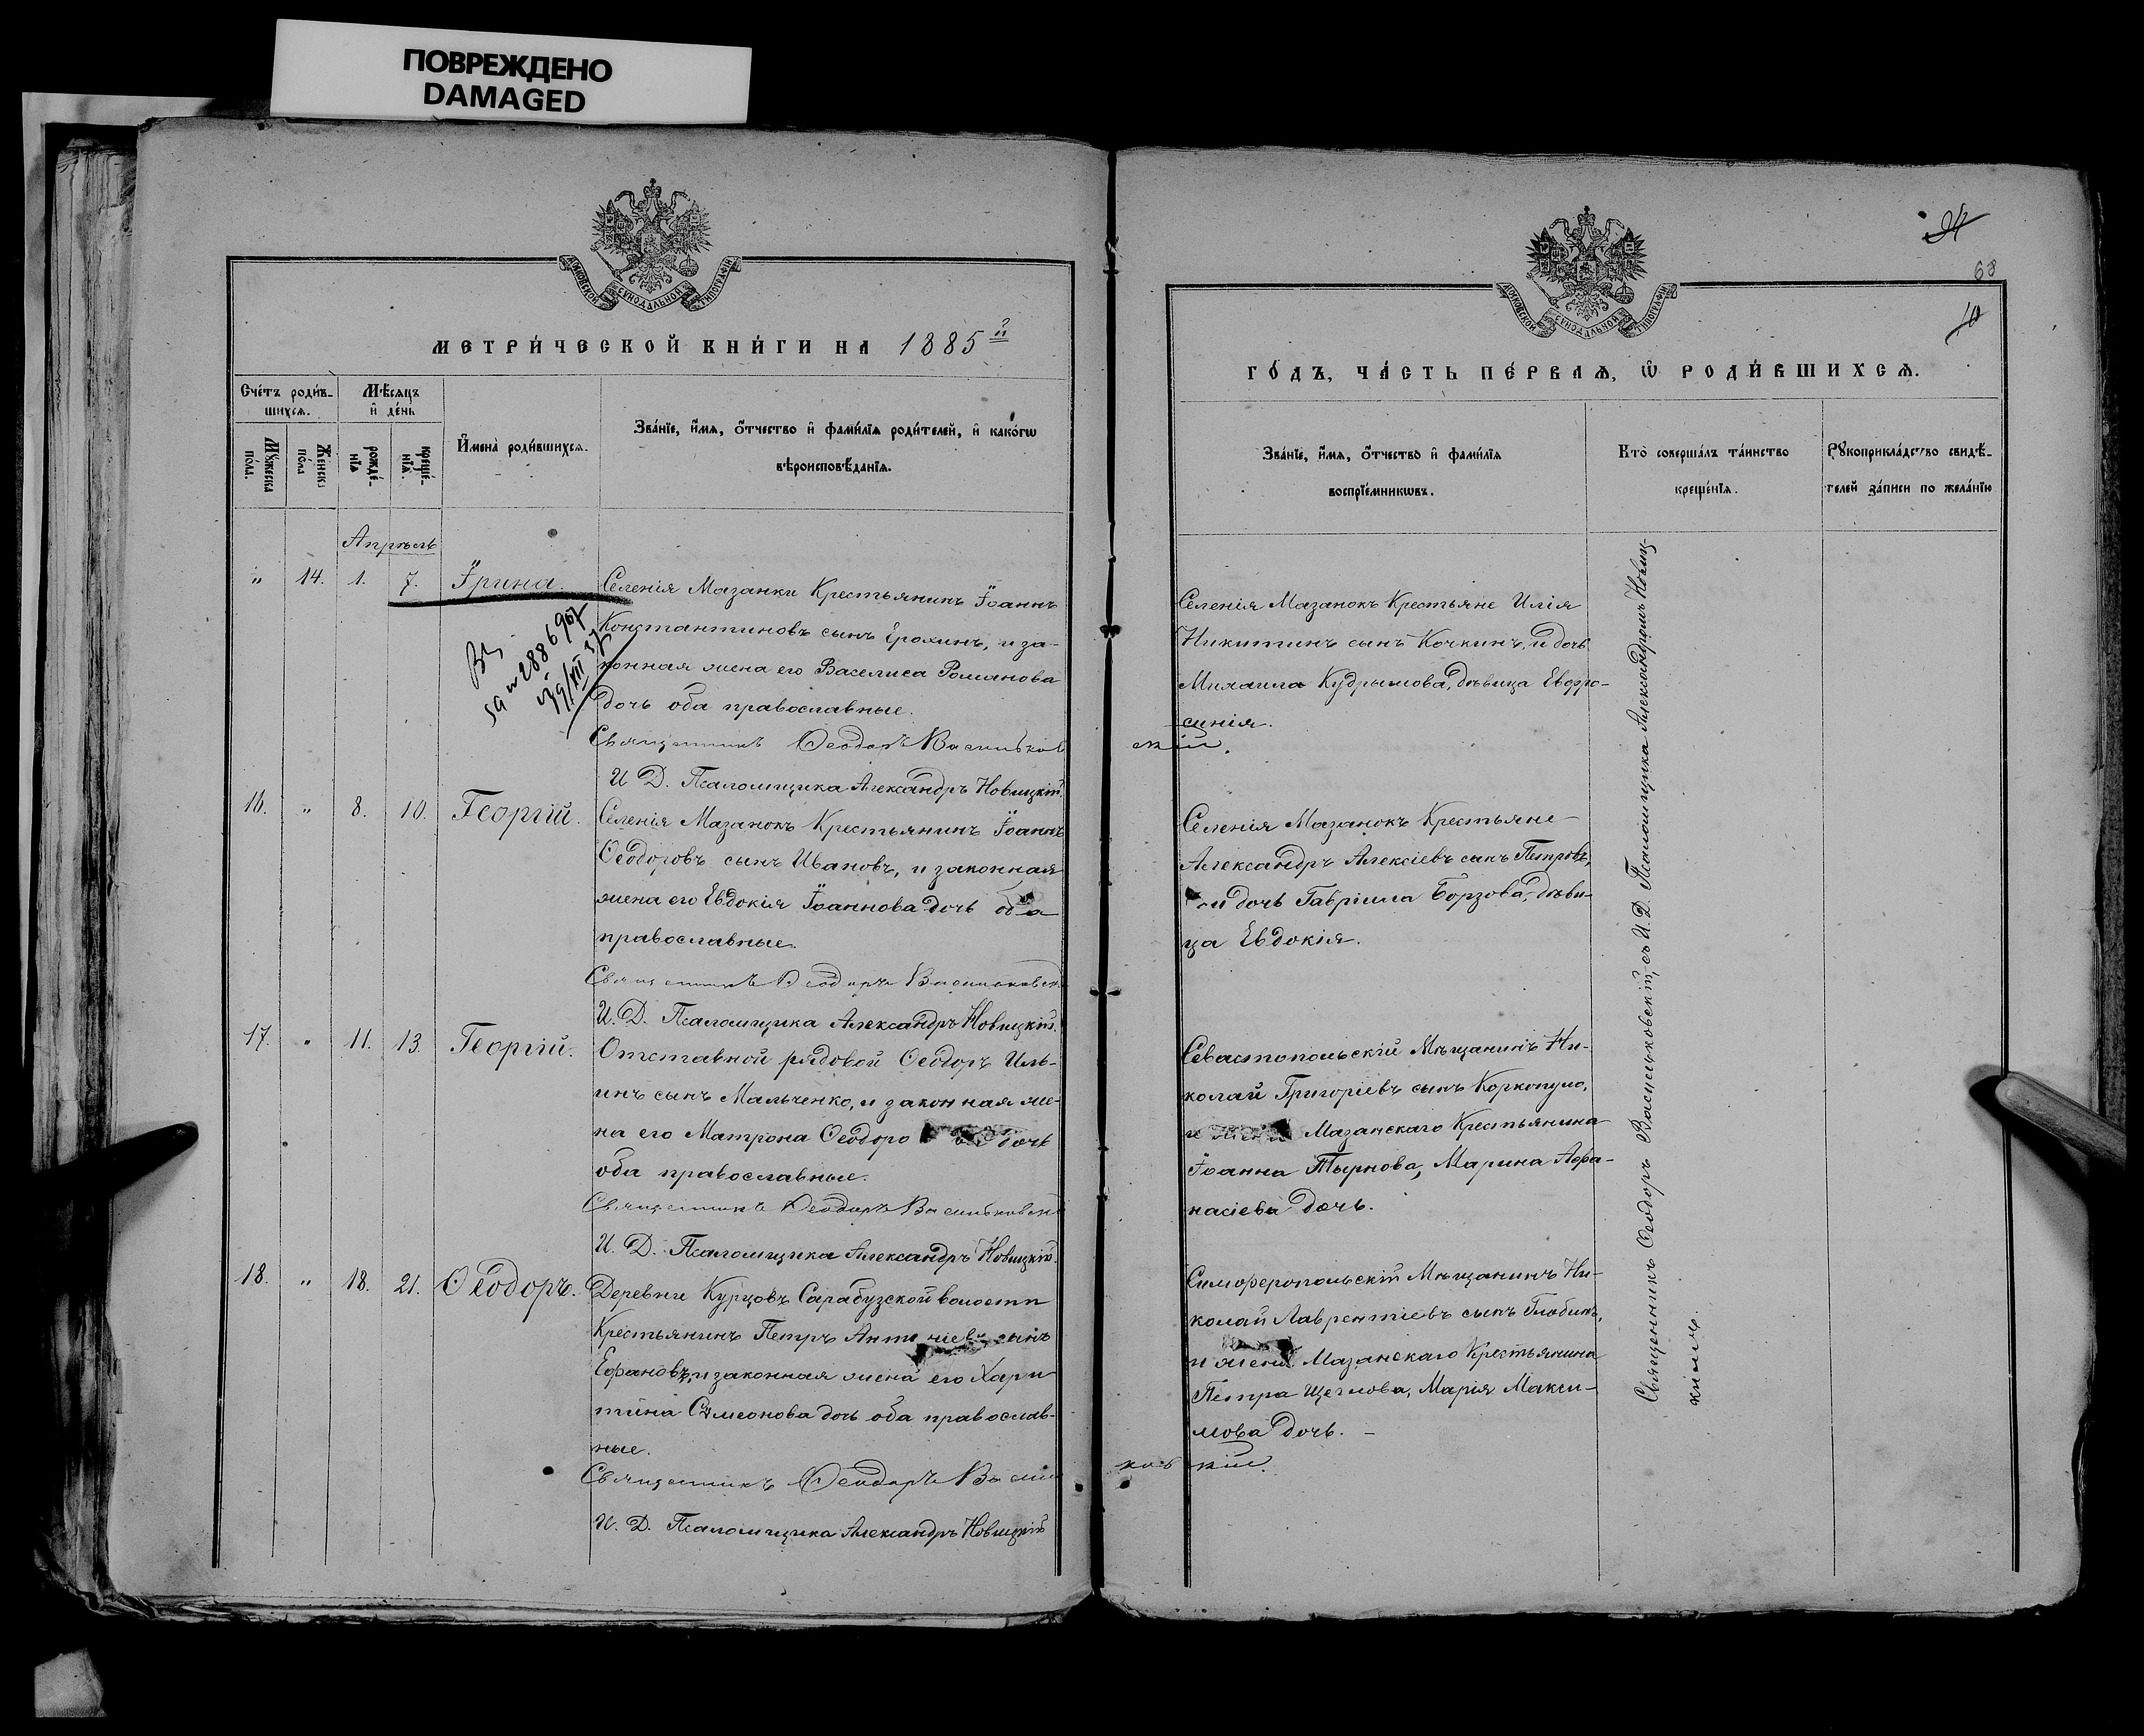 ПОВРЕЖДЕНО
DAMAGED
МОСКОВСКОЙ СУНОДАЛЬНОЙ ТИПОГРАФІИ
МЕТРИ́ЧЕСКОЙ КНИ́ГИ НА 1885й
Сче́тъ роди́в-
шихся.
Мѣ́сяцъ
и҆ де́нь
Мꙋ́жеска
по́ла.
Же́нска
по́ла
рожде́-
нїѧ
креще́-
нїѧ.
И҆мена̀ роди́вшихсѧ.
Зва́нїе, и҆́мѧ, ѻ҆́тчество и҆ фами́лїѧ роди́телей, и҆ како́гѡ
вѣроисповѣ́данїѧ.
Апрѣль
" 14. 1. 7. Ірина.
Селенія Мазанки Крестьянинъ Іоаннъ
Константиновъ сынъ Ерохинъ, и за-
конная жена его Васелиса Романова
дочь оба православные.
Священникъ Ѳеодоръ Васильков
скій.
И Д. Псаломщика Александръ Новицкій.
16. " 8. 10. Георгій.
Селенія Мазанокъ Крестьянинъ Іоаннъ
Ѳеодоровъ сынъ Ивановъ, и законная
жена его Евдокія Іоаннова дочь оба
православные.
Священникъ Ѳеодоръ Васильковск
И. Д. Псаломщика Александръ Новицкій.
17. " 11. 13. Георгій.
Отставной рядовой Ѳеодоръ Иль-
инъ сынъ Мальченко, и законная же-
на его Матрона Ѳеодоро дочь
оба православные.
Священникъ Ѳеодоръ Васильковск
И. Д. Псаломщика Александръ Новицкій.
18. " 18. 21. Ѳеодоръ.
Деревни Курцовъ Сарабузской волости
Крестьянинъ Петръ Антоніевъ сынъ
Ефановъ, и законная жена его Хари
тина Сѵмеонова дочь оба православ-
ные.
Священникъ Ѳеодоръ Васильковскій.
И. Д. Псаломщика Александръ Новицкій
68
10
МОСКОВСКОЙ СУНОДАЛЬНОЙ ТИПОГРАФІИ
ГО́ДЪ, ЧА́СТЬ ПЕ́РВАЯ, Ѡ҆ РОДИ́ВШИХСЯ.
Зва́нїе, и҆́мѧ, ѻ҆́тчество и҆ фами́лїѧ
воспрїе́мникѡвъ.
Кто̀ соверша́лъ та́инство
креще́нїѧ.
Рꙋкоприкла́дство свидѣ́-
телей за́писи по жела́нїю
Селенія Мазанокъ Крестьяне Илія
Никитинъ сынъ Кочкинъ, и дочь
Михаила Кудрымова, дѣвица Евфро-
синія.
Селенія Мазанокъ Крестьяне
Александръ Алексіевъ сынъ Петровъ,
и дочь Гавріила Борзова, дѣви-
ца Евдокія.
Севастопольскій Мѣщанинъ Ни-
колай Григоріевъ сынъ Коркопуло,
и жена Мазанскаго Крестьянина
Іоанна Тырнова, Марина Афа-
насіева дочь.
Симферопольскій Мѣщанинъ Ни-
колай Лаврентіевъ сынъ Глобинъ,
и жена Мазанскаго Крестьянина
Петра Щеглова, Марія Макси-
мова дочь.
Священникъ Ѳеодоръ Васильковскій, съ И. Д. Псаломщика Александромъ Новиц-
кимъ.